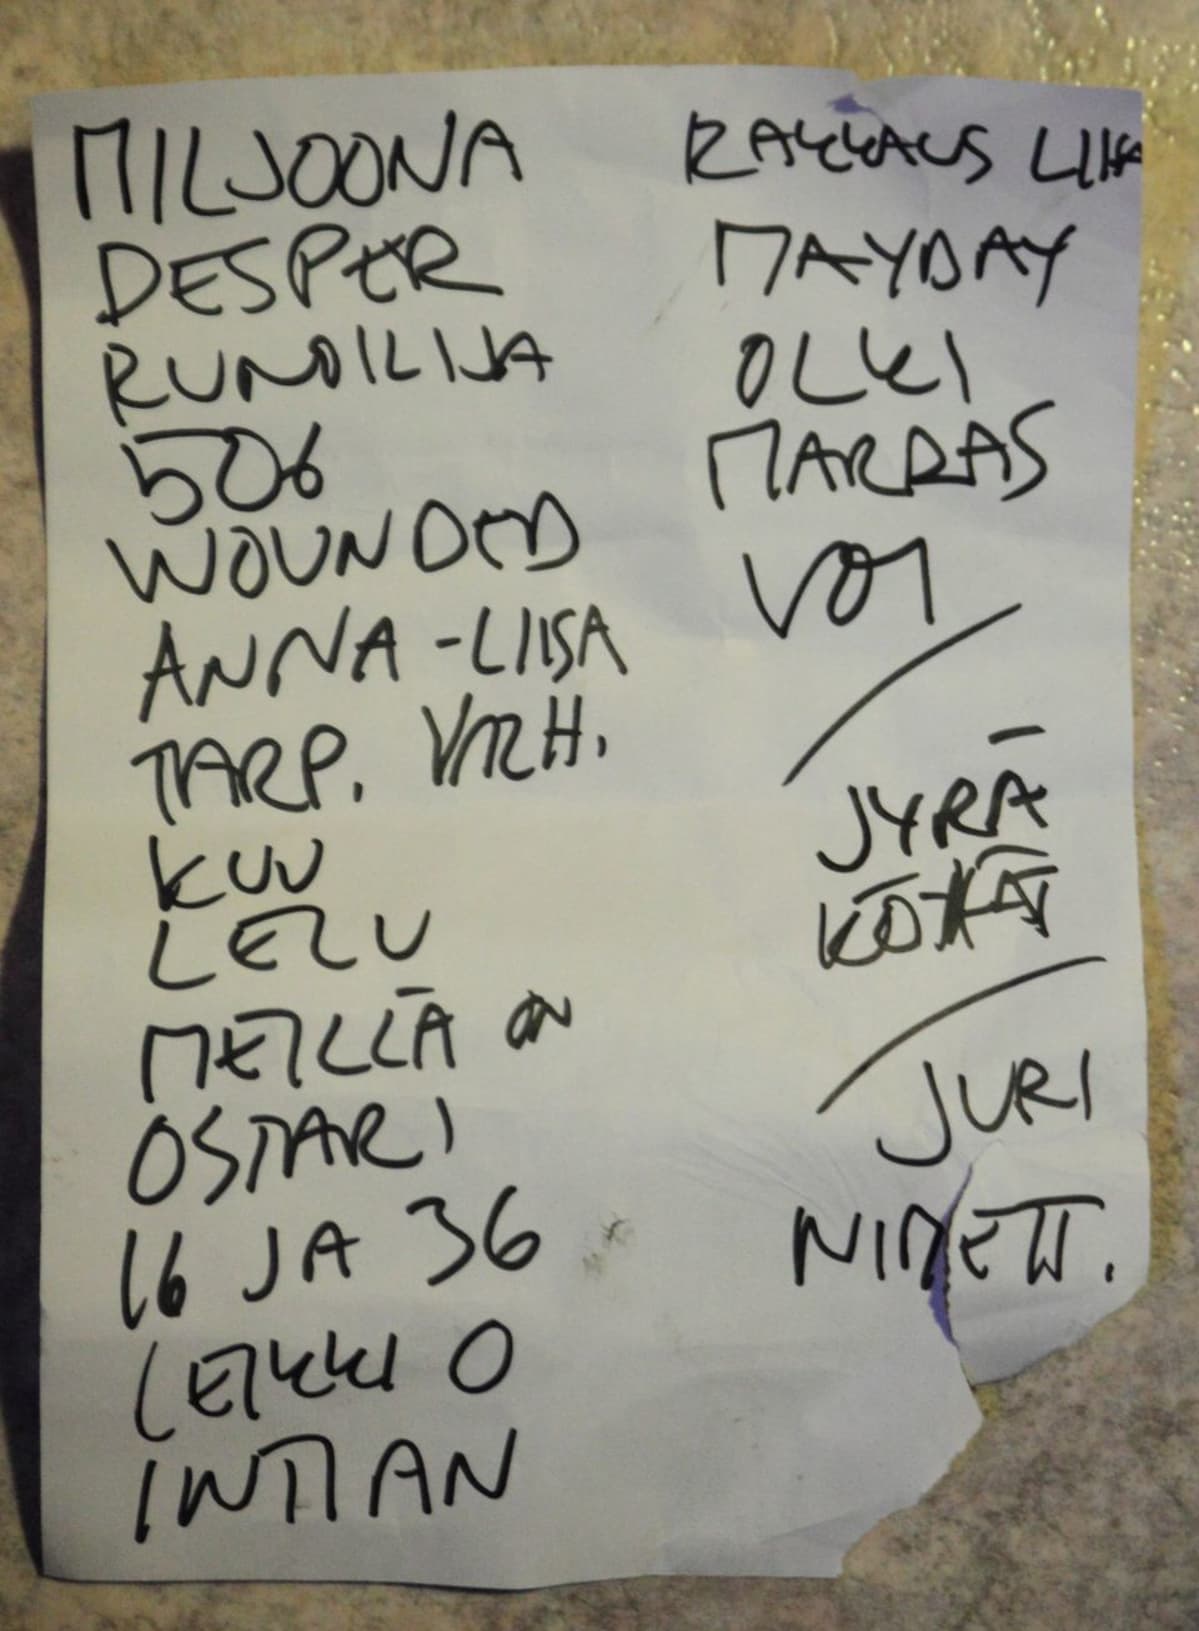 MILJOONA
DESPER
RUNOILIJA
506
WOUNDED
ANNA-LIISA
TARP. VIRH.
KUU
LELU
MEILLÄ ON
OSTARI
16 JA 36
LEIKKI O
INTIAN
RAKKAUS LIHA
MAYDAY
OLKI
MARRAS
VOI
JYRÄ
JURI
NIMETT.